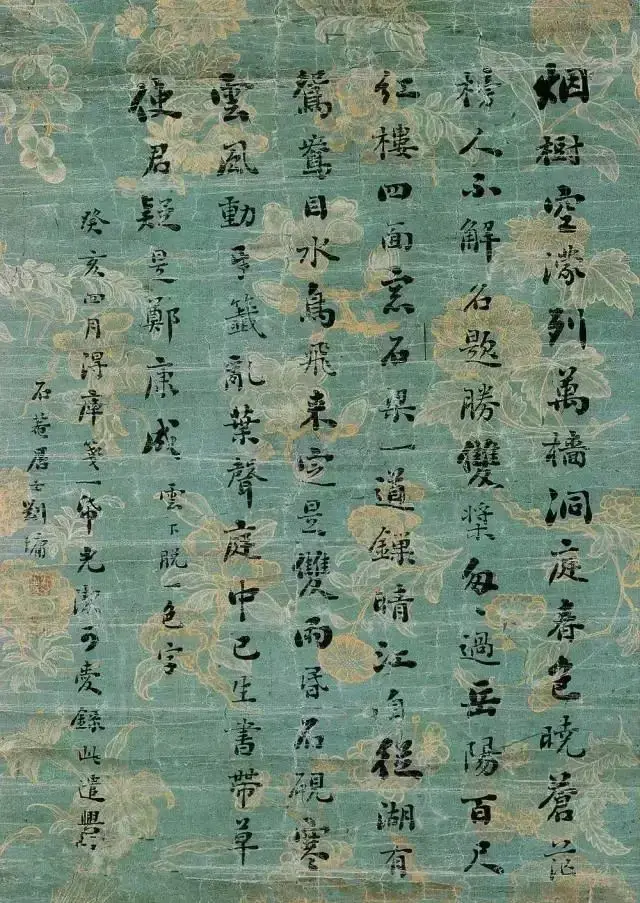 烟樹空濛列萬檣洞庭春色曉蒼茫
榜人不解名題勝雙槳匆〻過岳陽百尺
紅樓四面窓石梁一道鏁晴江自從湖有
鴛鴦目水鳥飛來定是雙雨昏石硯寒
雲風動牙籤亂葉聲庭中已生書帶草
使君疑是鄭康成 雲下脫一色字
癸亥四月得庫箋一帋光潔可愛錄此遣興
石菴居士劉墉